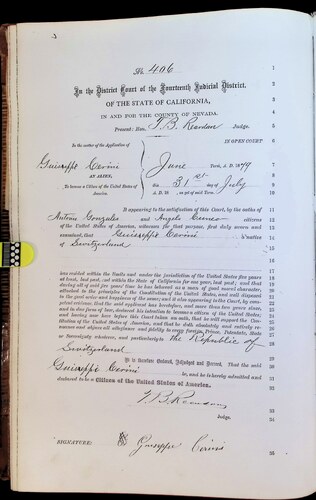 No. 406
In the District Court of the Fourteenth Judicial District.
OF THE STATE OF CALIFORNIA,
IN AND FOR THE COUNTY OF NEVADA.
Present: Hon. T. B. Reardan Judge.
In the matter of the Application of
IN OPEN COURT
Guiseppe Cerini
AN ALIEN,
To become a Citizen of the United States of
America.
June Term, A. D. 1879
this 31st day of July
A. D. 18 , as yet of said Term.
It appearing to the satisfaction of this Court, by the oaths of
Antoin Gonzales and Angelo Cuneo citizens
of the United States of America, witnesses for that purpose, first duly sworn and
examined, that Guiseppe Cerini a native
of Switzerland
has resided within the limits and under the jurisdiction of the United States five years
at least, last past, and within the State of California for one year, last past; and that
during all of said five years' time he has behaved as a man of good moral character,
attached to the principles of the Constitution of the United States, and well disposed
to the good order and happiness of the same; and it also appearing to the Court, by
petent evidence, that the said applicant has heretofore, and more than two years since,
and in due form of law, declared his intention to become a citizen of the United States,
and having now here before this Court taken an oath, that he will support the Con-
stitution of the United States of America, and that he doth absolutely and entirely re-
nounce and abjure all allegiance and fidelity to every foreign Prince, Potentate, State
or Sovereignty whatever, and particularly to the Republic of
Switzerland
It is therefore Ordered, Adjudged and Decreed, That the said
Guiseppe Cerini be, and he is hereby admitted and
declared to be a Citizen of the United States of America.
T. B. Reardan
Judge.
SIGNATURE: Guiseppe Cerini
1
2
3
4
5
6
7
8
9
10
11
12
13
14
15
16
17
18
19
20
21
22
23
24
25
26
27
28
29
30
31
32
33
34
35